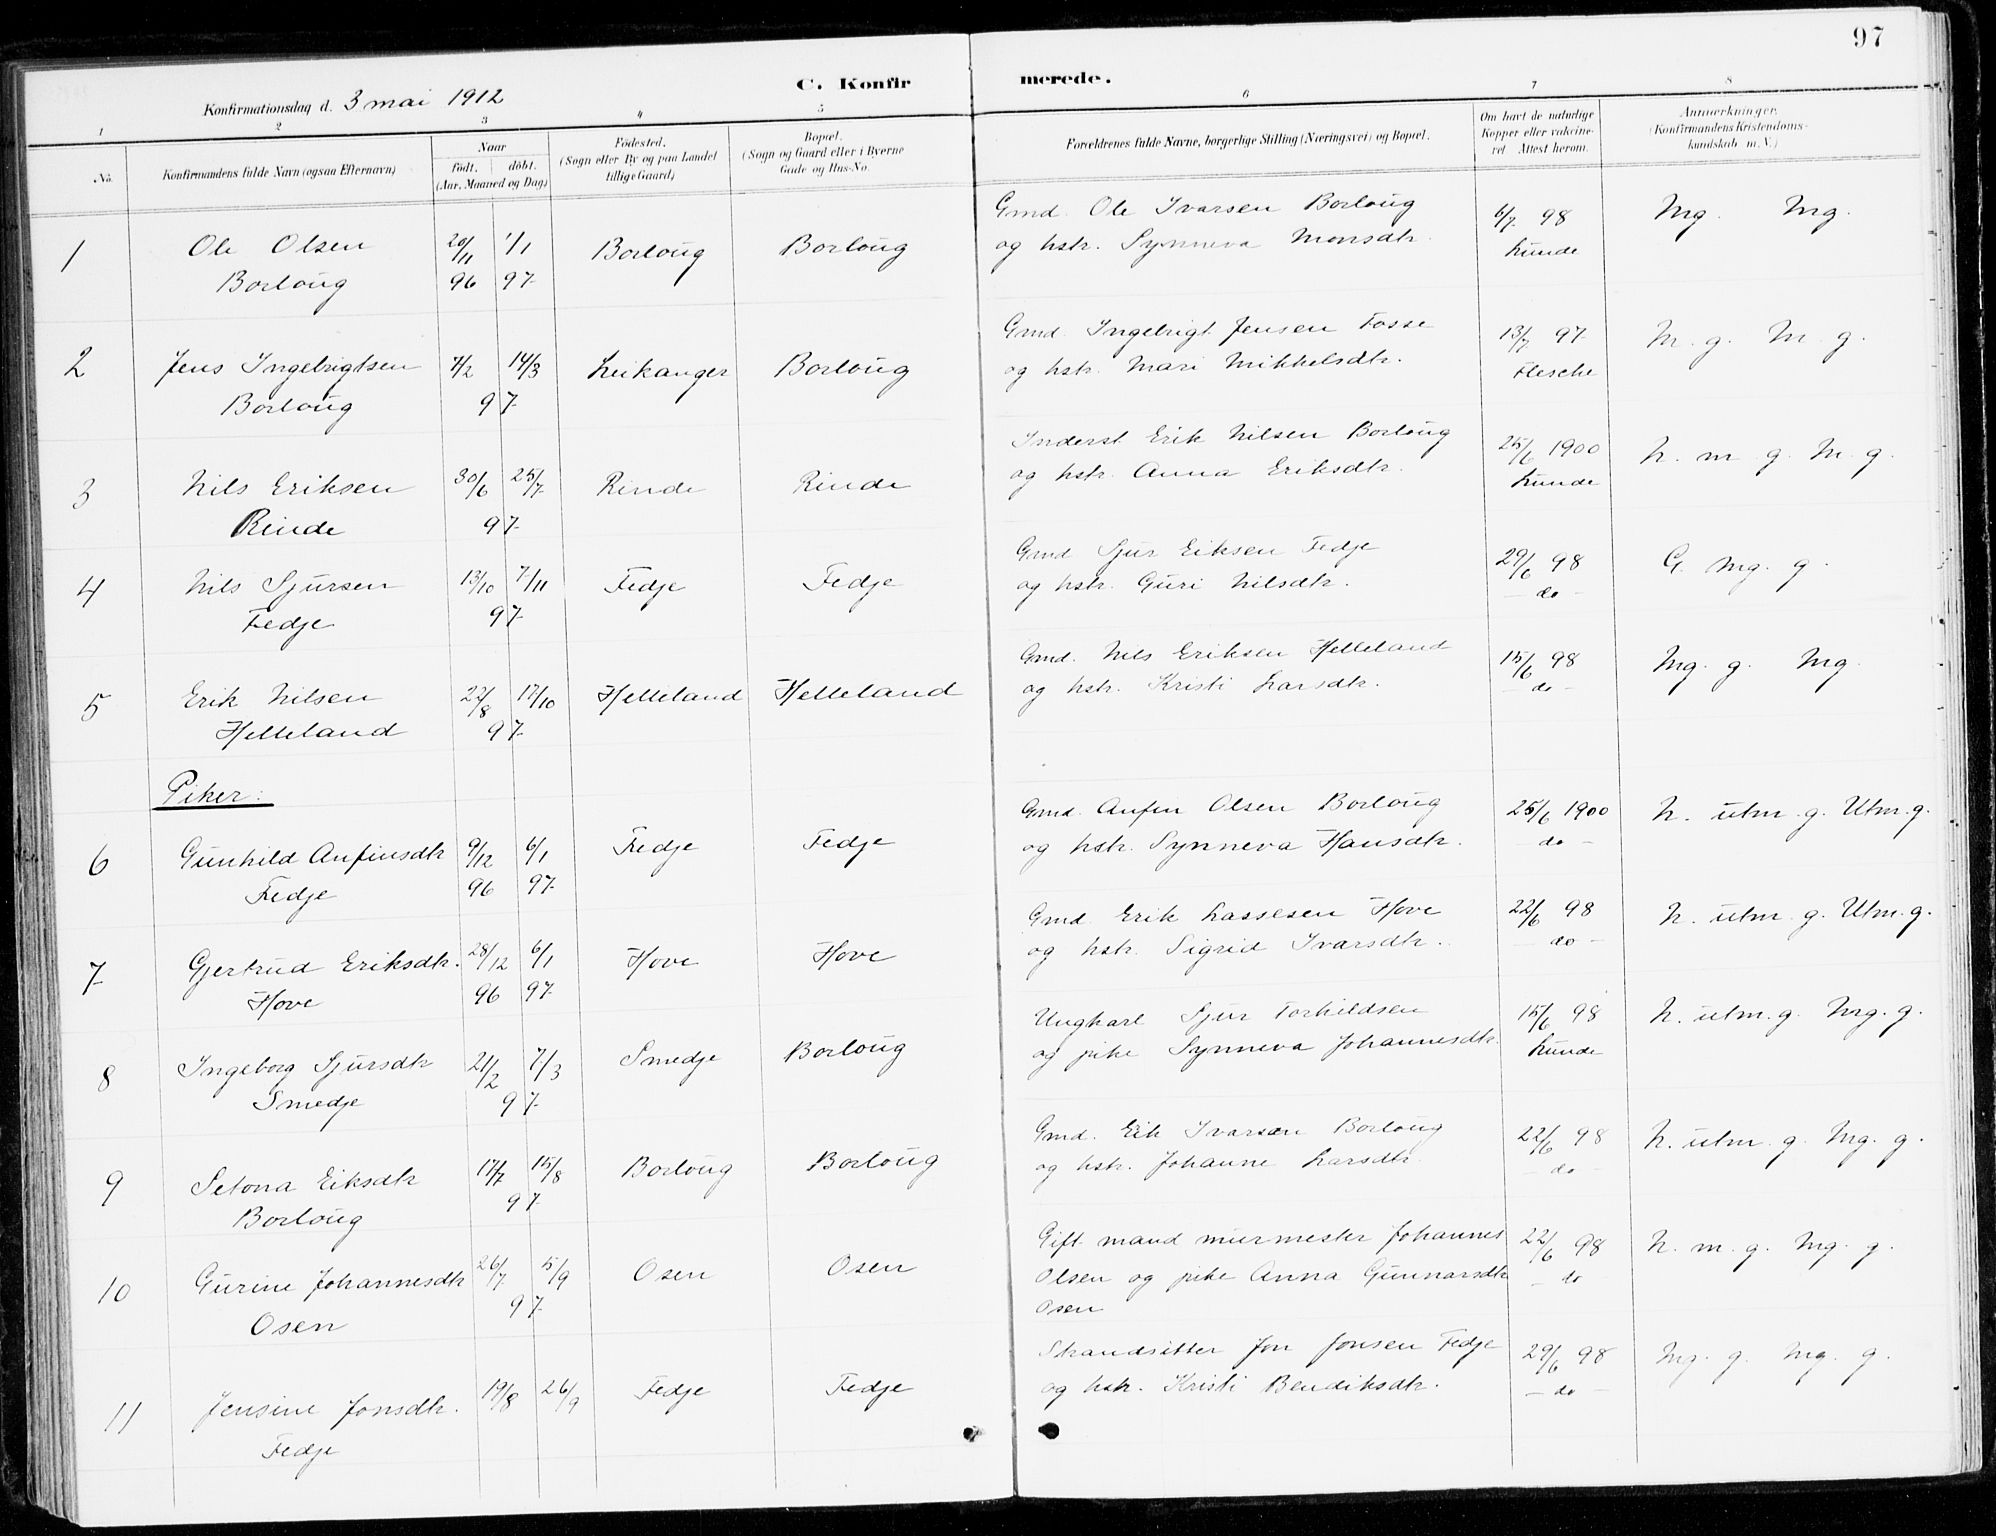 97
C. Konfirmerede.
Konfirmationsdag d. 3 mai 1912
1 2 3 4 5 6 7 8
No.
Konfirmandens fulde Navn (ogsaa Efternavn)
Naar
födt. döbt.
(Aar, Maaned og Dag)
Födested.
(Sogn eller By og paa Landet
tillige Gaard)
Bopæl.
(Sogn og Gaard eller i Byerne
Gade og Hus-No.
Forældrenes fulde Navne, borgerlige Stilling (Næringsvei) og Bopæl.
Om havt de naturlige
Kopper eller vaccine-
ret Attest herom.
Anmærkninger.
(Konfirmandens Kristendoms-
kundskab m. V.)
1 Ole Olsen 20/11 1/1 Borloug Borloug Gmd. Ole Ivarsen Borloug 6/7 98 Mg. Mg.
Borloug 96 97 og hstr. Synneva Monsdtr. Lunde
2 Jens Ingebrigtsen 7/2 14/3 Leikanger Borloug Gmd. Ingebrigt Jensen Fosse 13/7 97 M. g. M. g.
Borloug 97 og hstr. Mari Mikkelsdtr. Flesche
3 Nils Eriksen 30/6 25/7 Rinde Rinde Inderst Erik Nilsen Borloug 25/6 1900 N. m. g. M. g.
Rinde 97 og hstr. Anna Eriksdtr. Lunde
4 Nils Sjursen 13/10 7/11 Fedje Fedje Gmd Sjur Eiksen Fedje 29/6 98 G. Mg. g.
Fedje 97 og hstr. Guri Nilsdtr. - do -
5 Erik Nilsen 22/8 17/10 Helleland Helleland Gmd. Nils Eriksen Helleland 15/6 98 Mg. g. Mg.
Helleland 97 og hstr. Kristi Larsdtr. - do -
Piker:
6 Gunhild Anfinsdtr 9/12 6/1 Fedje Fedje Gmd. Anfin Olsen Borloug 25/6 1900 N. utm. g. Utm. g.
Fedje 96 97 og hstr. Synneva Hansdtr. - do -
7 Gjertrud Eriksdtr. 28/12 6/1 Hove Hove Gmd. Erik Lassesen Hove 22/6 98 N. utm. g. Utm. g.
Hove 96 97 og hstr. Sigrid Ivarsdtr. - do -
8 Ingeborg Sjursdtr 21/2 7/3 Smedje Borloug Ungkarl Sjur Torkildsen 15/6 98 N. utm. g. Mg. g.
Smedje 97 og pike Synneva Johannesdtr. Lunde
9 Setona Eiksdtr 17/7 15/8 Borloug Borloug Gmd. Eik Ivarsen Borloug 22/6 98 N. utm. g. Mg. g.
Borloug 97 og hstr. Johanne Larsdtr. - do -
10 Gurine Johannesdtr 26/7 5/9 Osen Osen Gift mand murmester Johannes 22/6 98 N. m. g. Mg. g.
Osen 97 Olsen og pike Anna Gunnarsdtr - do
Osen
11 Jensine Jonsdtr. 19/8 26/9 Fedje Fedje Strandsitter Jon Jonsen Fedje 29/6 98 Mg. g. Mg. g.
Fedje og hstr. Kristi Bendiksdtr. - do -